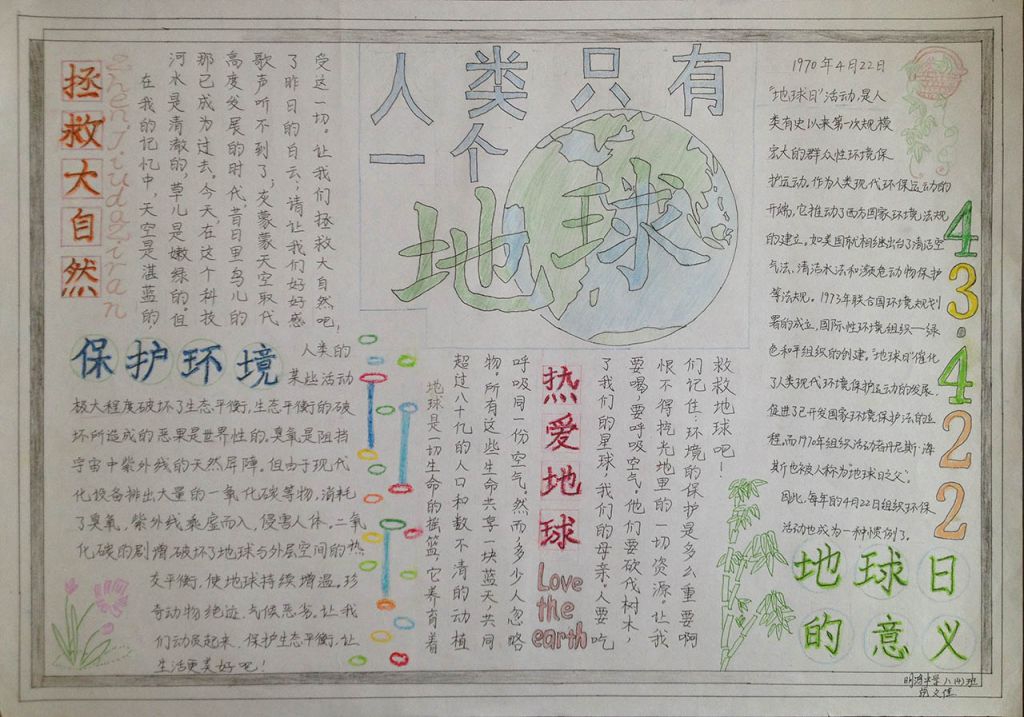 人类只有
一个
地球
拯救大自然
zhengjiudaziran
在我的记忆中,天空是湛蓝的,
河水是清澈的,草儿是嫩绿的。但
那已成为过去。今天,在这个科技
高度发展的时代,昔日里鸟儿的
歌声听不到了;灰蒙蒙天空取代
了昨日的白云;请让我们好好感
受这一切。让我们拯救大自然吧!
保护环境
人类的
某些活动
极大程度破坏了生态平衡,生态平衡的破
坏所造成的恶果是世界性的。臭氧是阻挡
宇宙中紫外线的天然屏障。但由于现代
化设备排出大量的一氧化碳等物,消耗
了臭氧,紫外线乘虚而入,侵害人体。二氧
化碳的剧增,破坏了地球与外层空间的热
交平衡,使地球持续增温,珍
奇动物绝迹,气候恶劣。让我
们动员起来,保护生态平衡,让
生活更美好吧!
热爱地球
Love
the
earth
地球是一切生命的摇篮,它养育着
超过八十亿的人口和数不清的动植
物。所有这些生命共享一块蓝天,共同
呼吸同一份空气。然而,多少人忽略
了我们的星球,我们的母亲。人要吃
要喝,要呼吸空气。他们要砍伐树木,
恨不得挖光地里的一切资源。让我
们记住:环境的保护是多么重要啊
救救地球吧!
1970年4月22日
"地球日"活动,是人
类有史以来第一次规模
宏大的群众性环境保
护运动。作为人类现代环保运动的
开端,它推动了西方国家环境法规
的建立。如美国就相继出台了清洁空
气法、清洁水法和濒危动物保护
等法规。1973年联合国环境规划
署的成立,国际性环境组织——绿
色和平组织的创建。"地球日"催化
了人类现代环境保护运动的发展,
促进了已开发国家环境保护法的进
程,而1970年组织活动者丹尼斯·海
斯也被人称为"地球日之父"。
因此,每年的4月22日组织环保
活动也成为一种惯例了。
43.422
地球日
的意义